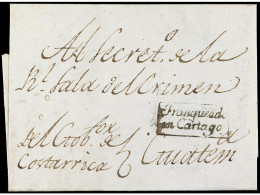 Al Secret.º de la
R.l Sala del Crimen
Franqueado
en Cartago
del Gob.or de
Costarrica Guatem.a